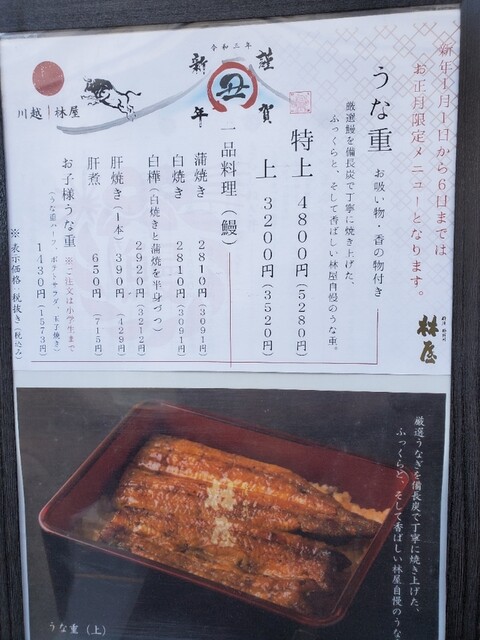 新年1月1日から6日までは
お正月限定メニューとなります。
令和三年
謹賀
新年
丑
川越 林屋
林屋
うな重 お吸い物・香の物付き
厳選鰻を備長炭で丁寧に焼き上げた、
ふっくらと、そして香ばしい林屋自慢のうな重。
特上 4800円(5280円)
上 3200円(3520円)
一品料理(鰻)
蒲焼き 2810円(3091円)
白焼き 2810円(3091円)
白樺(白焼きと蒲焼を半身づつ)
2920円(3212円)
肝焼き(1本) 390円(429円)
肝煮 650円(715円)
お子様うな重 ※ご注文は小学生まで
(うな重ハーフ、ポテトサラダ、玉子焼き)
1430円(1573円)
※表示価格:税抜き(税込み)
厳選うなぎを備長炭で丁寧に焼き上げた、
ふっくらと、そして香ばしい林屋自慢のうな
うな重(上)